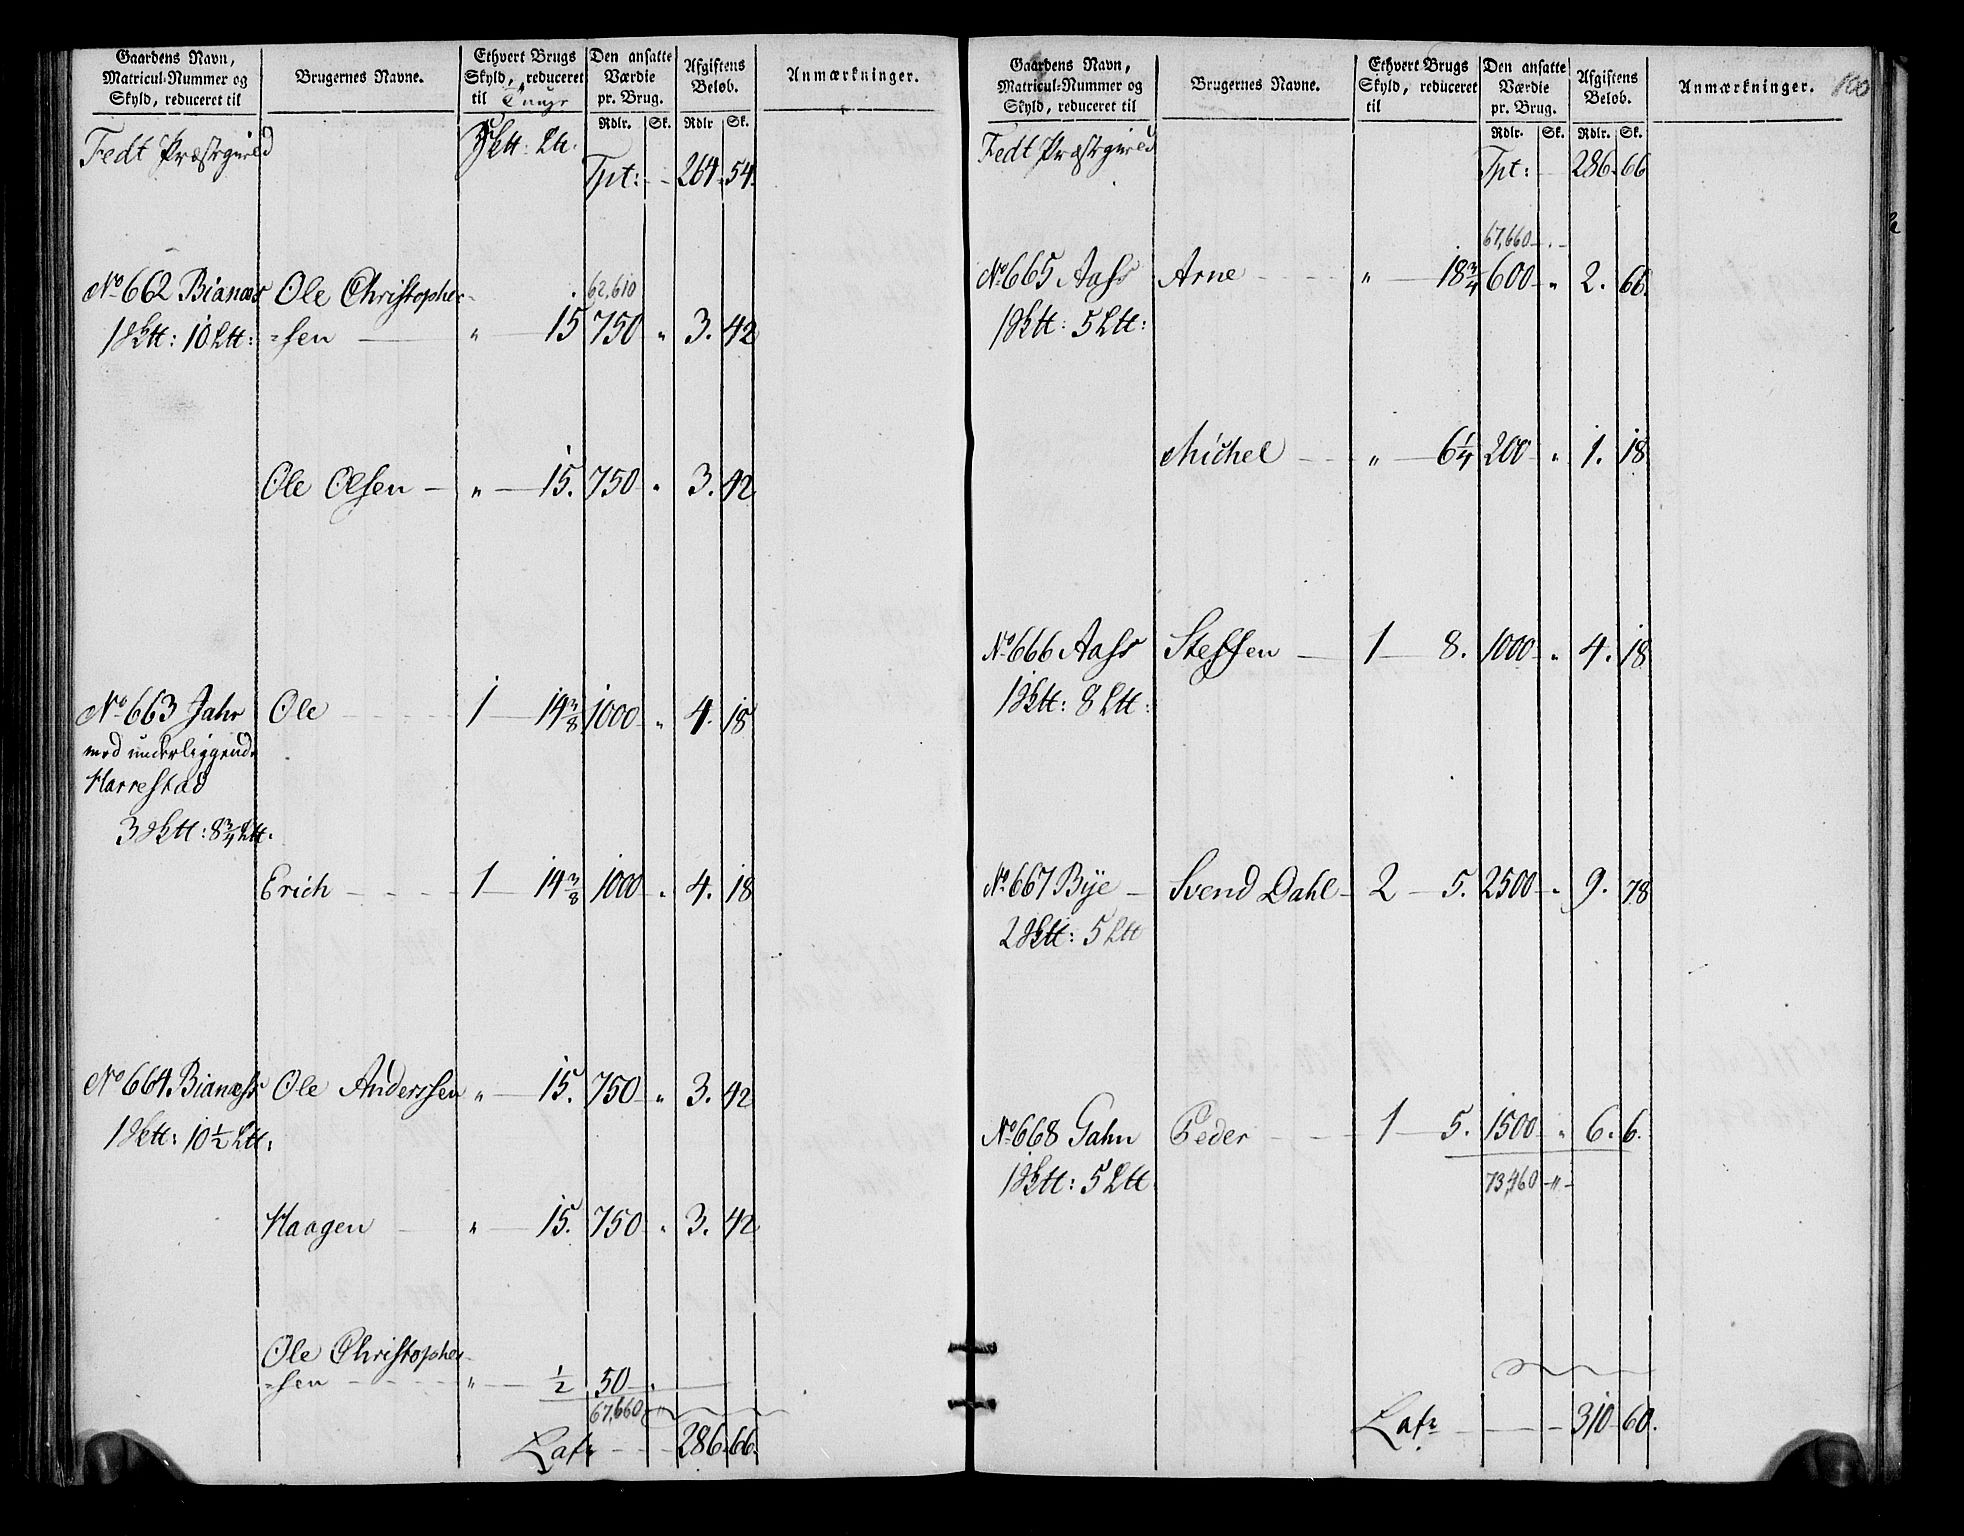 Gaardens Navn,
Matricul-Nummer og
Skyld, reduceret til
Brugernes Navne.
Ethvert Brugs
Skyld, reduceret
til
Den ansatte
Værdie
pr. Brug.
Afgiftens
Beløb.
Anmærkninger.
Rdlr. Sk. Rdlr Sk.
Fedt Præstegield
Tpt: 264. 54.
62,610
No 662 Bianæs Ole Christopher-
1 Sktt: 10 Ltt: =sen " 15 750 " 3. 42
Ole Olsen " 15. 750 " 3. 42
No 663 Jahr Ole 1 14 3/8 1000 " 4. 18
med underliggende
Harrestad
3 Sktt: 8 3/4 Ltt.
Erich 1 14 3/8 1000 " 4. 18
No 664 Bianæss Ole Anderssen " 15. 750 " 3. 42
1 Sktt: 10 1/2 Ltt:
Haagen " 15. 750 " 3. 42
Ole Christopher-
=sen " 1/2 50 "
67,660 "
Latr 286. 66.
Gaardens Navn,
Matricul-Nummer og
Skyld, reduceret til
Brugernes Navne.
Ethvert Brugs
Skyld, reduceret
til
Den ansatte
Værdie
pr. Brug.
Afgiftens
Beløb.
Anmærkninger.
100
Rdlr. Sk. Rdlr. Sk.
Fedt Præstegield
Tpt: 286. 66
67,660
No 665 Aass Arne " 18 3/4 600 " 2. 66.
1 Sktt: 5 Ltt:
Michel " 6 1/4 200 " 1. 18
No 666 Aass Steffen 1 8. 1000 " 4. 18
1 Sktt: 8 Ltt:
No 667 Bÿe Svend Dahl 2 5. 2500 " 9. 78
2 Sktt: 5 Ltt
No 668 Gahn Peder 1 5. 1500 " 6. 6.
1 Sktt: 5 Ltt. 73,460 "
Latr 310. 60.